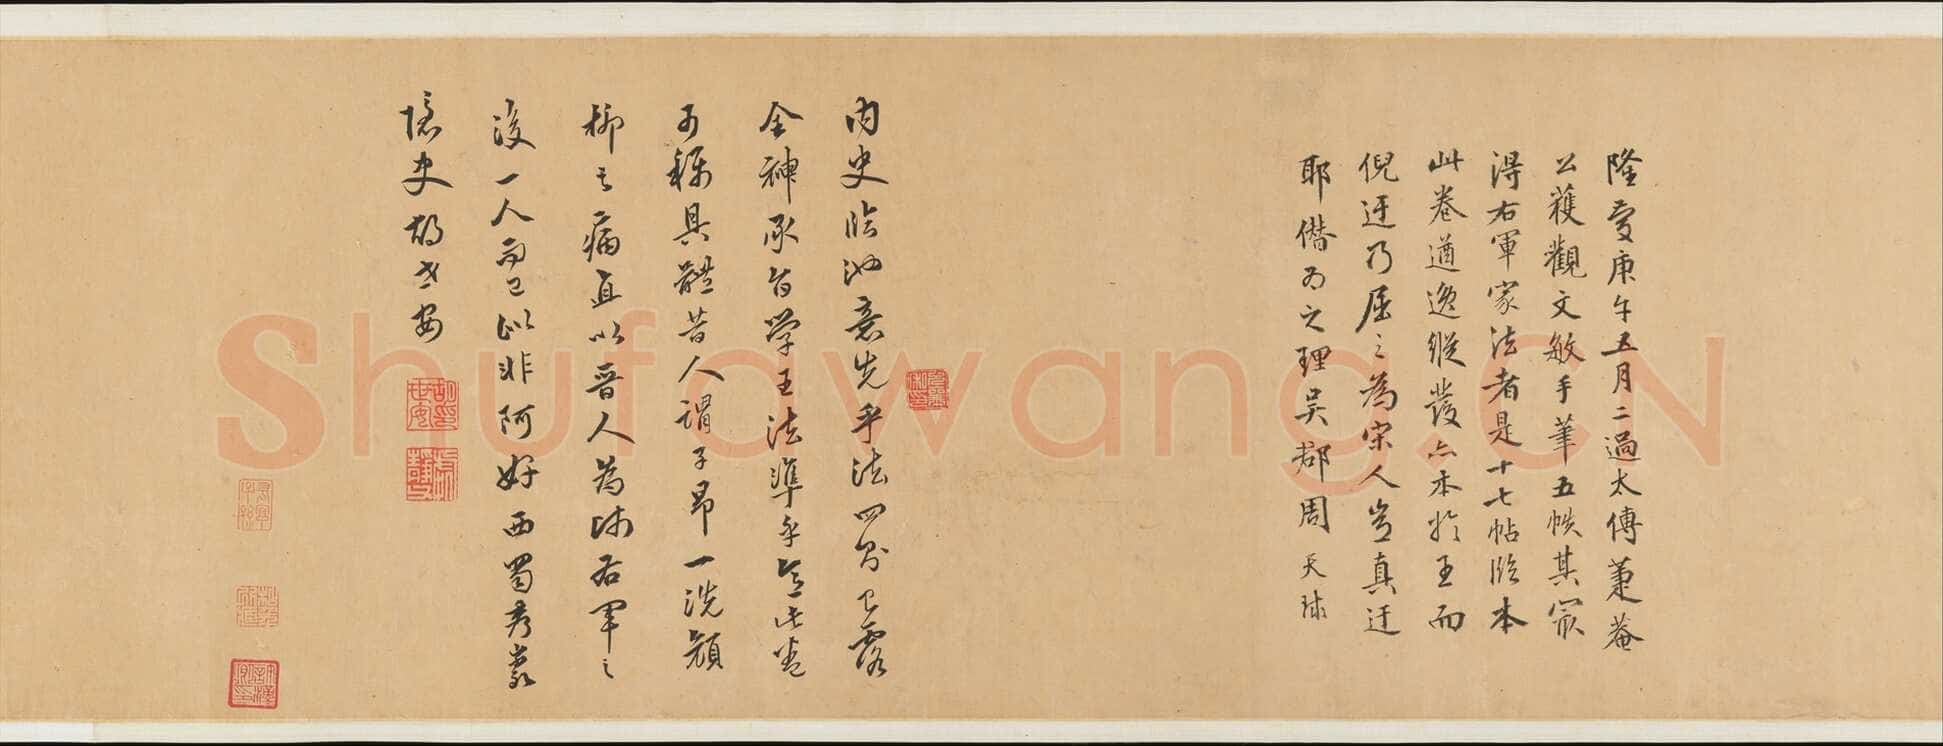 隆慶庚午五月二過太傳蒹菴
公獲觀文敏手筆五帙其最
得右軍家法者是十七帖臨本
此卷遒逸縱發亦本於王而
倪迂乃屈之為宋人豈真迂
耶僭為之理吳郡周天球
內史臨池意先乎法四字已露
全神承旨學王法準乎意此卷
可稱具體昔人謂子昂一洗顏
柳之病直以晉人為師右軍之
後一人而已似非阿好西蜀秀巖
隱史胡世安
Shufawang.CN